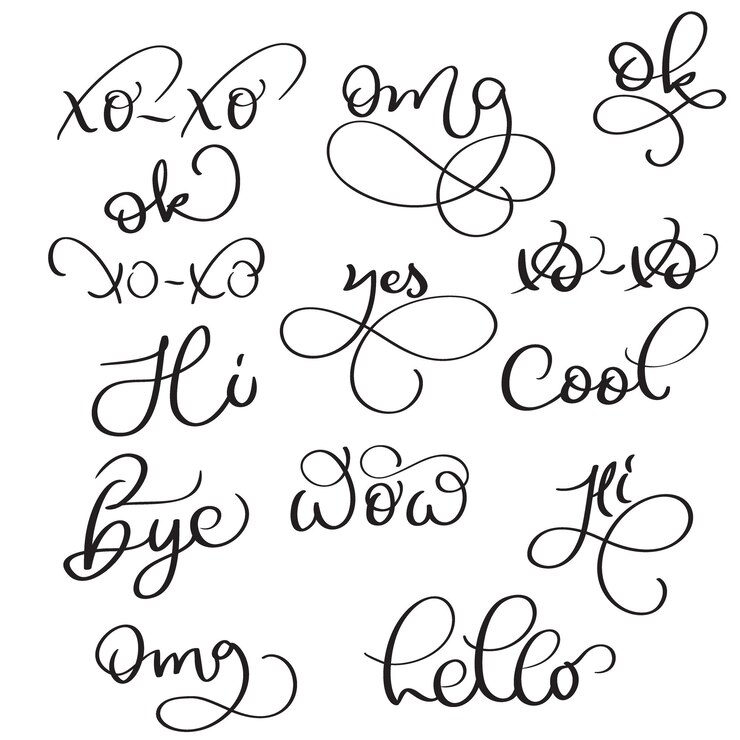 xo-xo
omg
ok
ok
xo-xo
yes
xo-xo
Hi
Cool
Bye
Wow
Hi
Omg
hello